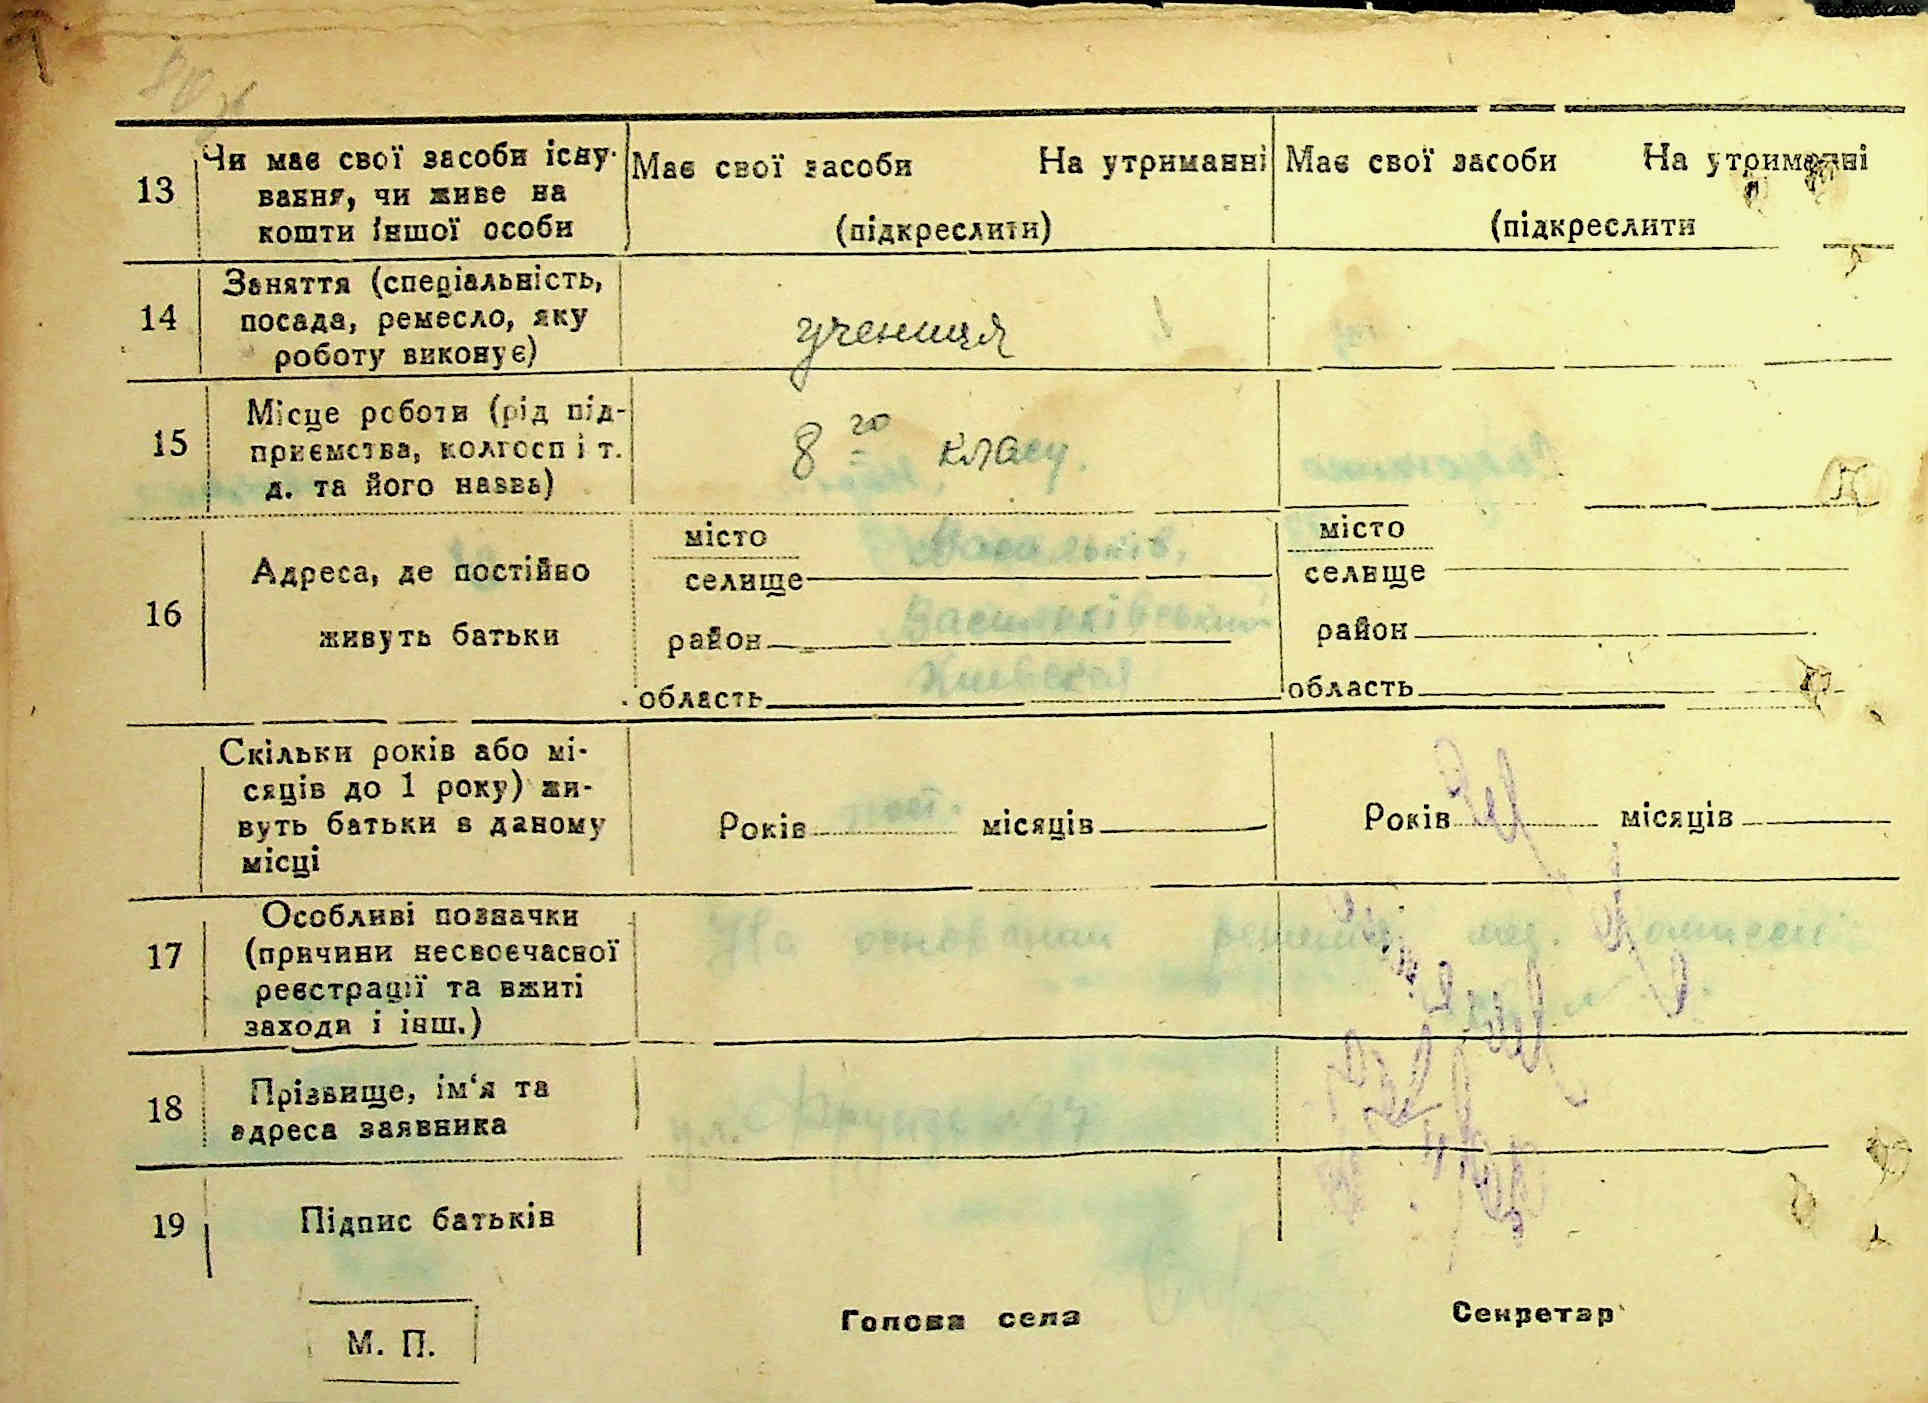 13
Чи має свої засоби існу-
вання, чи живе на
кошти іншої особи
Має свої засоби На утриманні
(підкреслити)
Має свої засоби На утриманні
(підкреслити
14
Заняття (спеціальність,
посада, ремесло, яку
роботу виконує)
учениця
15
Місце роботи (рід під-
приємства, колгосп і т.
д. та його назва)
8го класу.
16
Адреса, де постійно
живуть батьки
місто
селище
Васильків,
район
Васильківський
область
Киевская
місто
селище
район
область
Скільки років або мі-
сяців до 1 року) жи-
вуть батьки в даному
місці
Років пост. місяців
Років місяців
17
Особливі позначки
(причини несвоєчасної
реєстрації та вжиті
заходи і інш.)
На основании решения мед.
18
Прізвище, ім‘я та
адреса заявника
ул. Фрунзе
19
Підпис батьків
М. П.
Голова села
Секретар